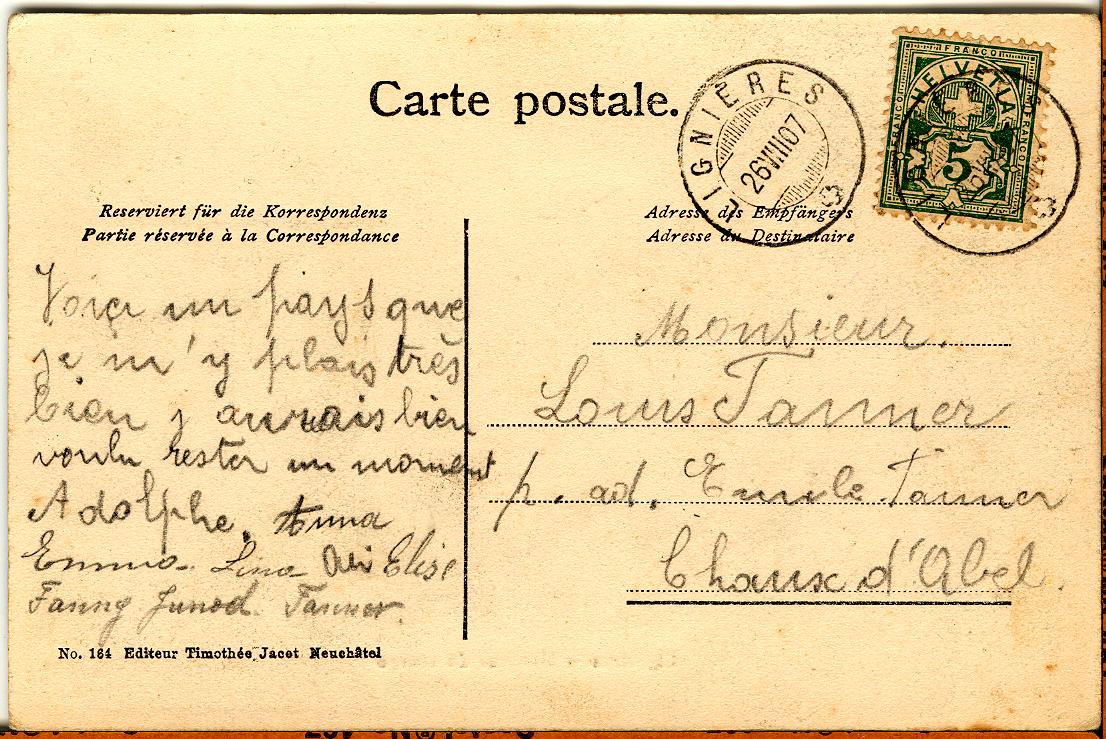 Carte postale.
LIGNIÈRES
26 VIII 07
FRANCO
HELVETIA
FRANCO
FRANCO
5
Reserviert für die Korrespondenz
Partie réservée à la Correspondance
Adresse des Empfängers
Adresse du Destinataire
Voiçi un pays que
je m'y plais très
bien j aurais bien
voulu rester un moment
Adolphe. Anna
Emma. Lina Ali Elise
Fanny Junod. Tanner.
Monsieur.
Louis Tanner
p. ad. Emile Tanner
Chaux d'Abel.
No. 164 Editeur Timothée Jacot Neuchâtel